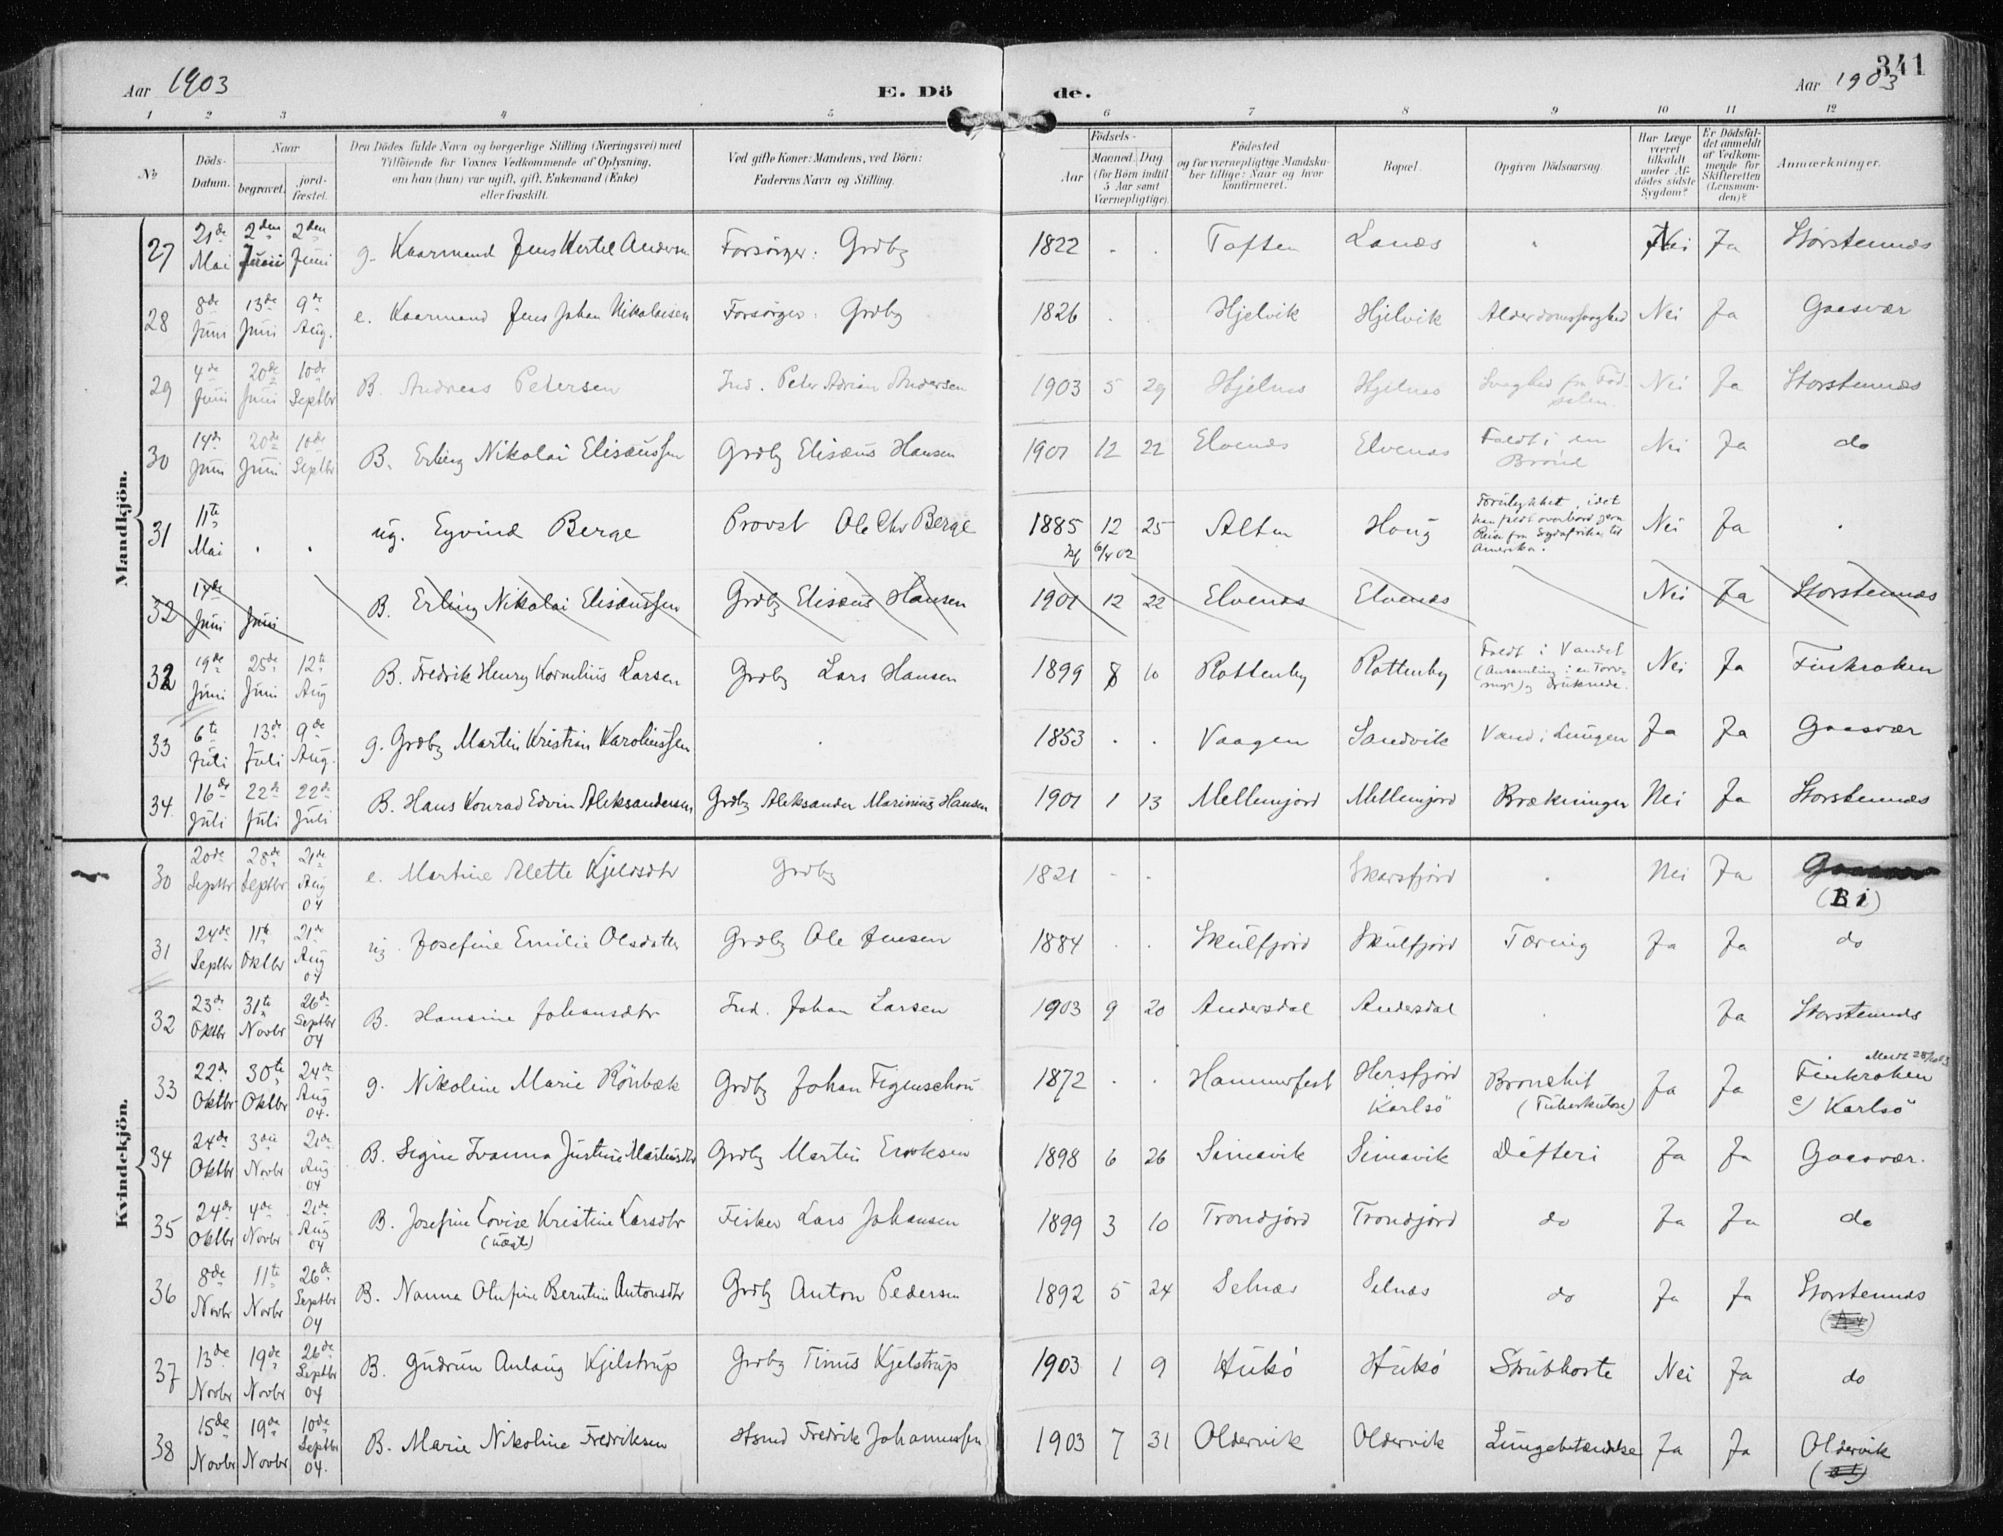 341
Aar 1903 E. Dö de. Aar 1903
1 2 3 4 5 6 7 8 9 10 11 12
No
Döds-Datum.
Naar
begravet.
jord-fæstet.
Den Dödes fulde Navn og borgerlige Stilling (Næringsvei) med
Tilföiende for Voxnes Vedkommende af Oplysning,
om han (hun) var ugift, gift, Enkemand (Enke)
eller fraskilt.
Ved gifte Koner: Mandens, ved Börn:
Faderens Navn og Stilling.
Födsels-
Aar
Maaned. Dag
(for Börn indtil
5 Aar samt
Værnepligtige).
Födested
og for værnepligtige Mandska-
ber tillige: Naar og hvor
konfirmeret.
Bopæl.
Opgiven Dödsaarsag.
Har Læge
været
tilkaldt
under Af-
dödes sidste
Sygdom?
Er Dödsfal-
det anmeldt
af Vedkom-
mende for
Skifteretten
(Lensman-
den)?
Anmærkninger.
Mandkjön.
27 21de Mai 2den Juni 2den Juni g. Kaarmand Jens Hertel Andersn Forsörger: Grdbg 1822 . . Toften Lanæs . Nei Ja Storstennæs
28 8de Juni 13de Juni 9de Aug. e. Kaarmand Jens Johan Nikolaisen Forsörger: Grdbg 1826 . . Hjelvik Hjelvik Alderdomssvaghed Nei Ja Gaasvær
29 4de Juni 20de Juni 10de Septbr B. Andreas Petersen Ind. Peter Adrian Andersen 1903 5 29 Hjelnes Hjelnes Svaghed fra Föd-
selen. Nei Ja Storstennæs
30 14de Juni 20de Juni 10de Septbr B. Erling Nikolai Elisæussen Grdbg Elisæus Hansen 1901 12 22 Elvenæs Elvenæs Faldt i en
Brönd Nei Ja do
31 11te Mai . . ug. Eyvind Berge Provst Ole Chr Berge 1885 12 25 Alten Haug Forulykket, idet
han faldt overbord paa
Reise fra Sydafrika til
Amerika. Nei Ja .
kf 6/4 02
32 14de Juni Juni B. Erling Nikolai Elisæussen Grdbg Elisæus Hansen 1901 12 22 Elvenæs Elvenæs Nei Ja Storstennæs
32 19de Juni 25de Juni 12te Aug B. Fredrik Henry Kornelius Larsen Grdbg Lars Hansen 1899 8 10 Rottenby Rottenby Faldt i Vandet
(Ansamling i en Torv-
myr) og druknede. Nei Ja Finkroken
33 6te Juli 13de Juli 9de Aug. g. Grdbg Martin Kristian Karoliussen . 1853 . . Vaagen Sandvik Vand i Lungen Ja Ja Gaasvær
34 16de Juli 22de Juli 22de Juli B. Hans Konrad Edvin Aleksandersen Grdbg Aleksander Marinius Hansen 1901 1 13 Mellemjord Mellemjord Brækninger Nei Ja Storstennæs
Kvindekjön.
30 20de Septbr 28de Septbr 21de Aug 04 e. Martine Alette Kjeldsdtr Grdbg 1821 . . Skarsfjord . Nei Ja Gaasvær
31 24de Septbr 11te Oktbr 21de Aug 04 ug. Josefine Emilie Olsdatter Grdbg Ole Jensen 1884 . . Skulfjord Skulfjord Tæring Ja Ja do
32 23de Oktbr 31te Novbr 26de Septbr 04 B. Hansine Johansdtr Ind. Johan Larsen 1903 9 20 Andersdal Andersdal . Ja Storstennæs
33 22de Oktbr 30te Oktbr 24de Aug 04. g. Nikoline Marie Rönbæk Grdbg Johan Figenschou 1872 . . Hammerfest Hersfjord
Karlsö Bronchit
(Tuberkulose) Ja Ja Finkroken
c/ Karlsö
34 24de Oktbr 3die Novbr 21de Aug 04 B. Signe Ivanna Justine Martinsdtr Grdbg Martin Eriksen 1898 6 26 Simavik Simavik Difteri Ja Ja Gaasvær.
35 24de Oktbr 4de Novbr 21de Aug 04 B. Josefine Lovise Kristine Larsdtr Fisker Lars Johansen 1899 3 10 Trondjord Trondjord do Ja Ja do
(uægte)
36 8de Novbr 11te Novbr 26de Septbr 04 B. Nanna Olufine Berntine Antonsdtr Grdbg Anton Pedersen 1892 5 24 Selnæs Selnæs do Ja Ja Storstennæs
37 13de Novbr 19de Novbr 26de Septbr 04 B. Gudrun Anlaug Kjelstrup Grdbg Tinus Kjelstrup 1903 1 9 Hukö Hukö Strubhoste Nei Ja do
38 15de Novbr 19de Novbr 10de Septbr 04. B. Marie Nikoline Fredriksen Hsmd Fredrik Johannessen 1903 7 31 Oldervik Oldervik Lungebetændelse Ja Ja Oldervik